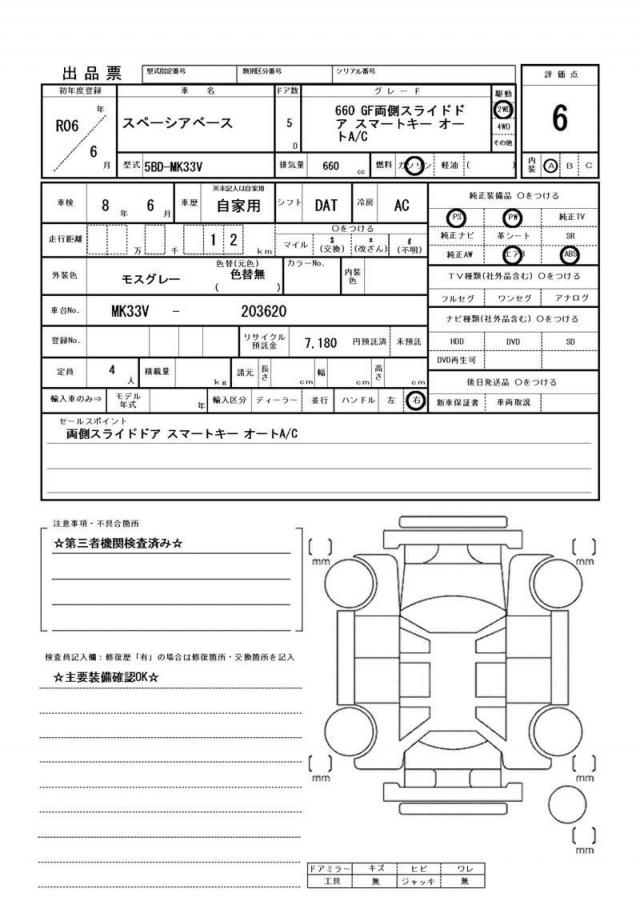 出品票 型式指定番号 類別区分番号 シリアル番号 評価点
初年度登録 車名 ドア数 グレード 駆動
R06 年 6 月
スペーシアベース 5 D
660 GF両側スライドド
ア スマートキー オー
トA/C
2WD
4WD
その他
6
型式 5BD-MK33V 排気量 660 cc 燃料 ガソリン 軽油 ( ) 内装 A B C
車検 8 年 6 月 車歴 ※未記入は自家用 自家用 シフト DAT 冷房 AC 純正装備品 ○をつける
PS PW 純正TV
走行距離 万 千 1 2 km ○をつける マイル $(交換) x(改ざん) #(不明) 純正ナビ 革シート SR
純正AW エアB ABS
外装色 モスグレー 色替(元色) 色替無 ( ) カラーNo. 内装色 TV種類(社外品含む) ○をつける
フルセグ ワンセグ アナログ
車台No. MK33V - 203620 ナビ種類(社外品含む) ○をつける
登録No. リサイクル預託金 7,180 円預託済 未預託 HDD DVD SD
DVD再生可
定員 4 人 積載量 kg 諸元 長さ cm 幅 cm 高さ cm 後日発送品 ○をつける
輸入車のみ⇒ モデル年式 年 輸入区分 ディーラー 並行 ハンドル 左 右 新車保証書 車両取説
セールスポイント
両側スライドドア スマートキー オートA/C
注意事項・不具合箇所
☆第三者機関検査済み☆
検査員記入欄：修復歴「有」の場合は修復箇所・交換箇所を記入
☆主要装備確認OK☆
[ ] mm [ ] mm
[ ] mm [ ] mm
[ ] mm
ドアミラー キズ ヒビ ワレ
工具 無 ジャッキ 無